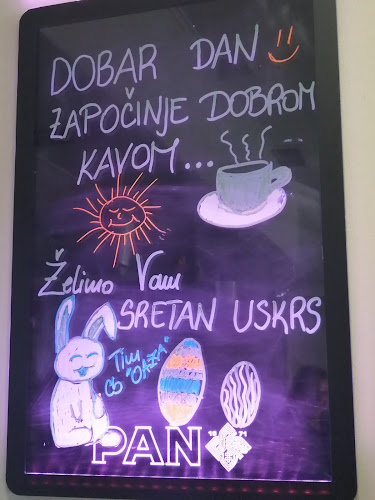 DOBAR DAN
ZAPOČINJE DOBROM
KAVOM...
Želimo Vam
SRETAN USKRS
Tim
CB "OAZA"
PAN
19 71